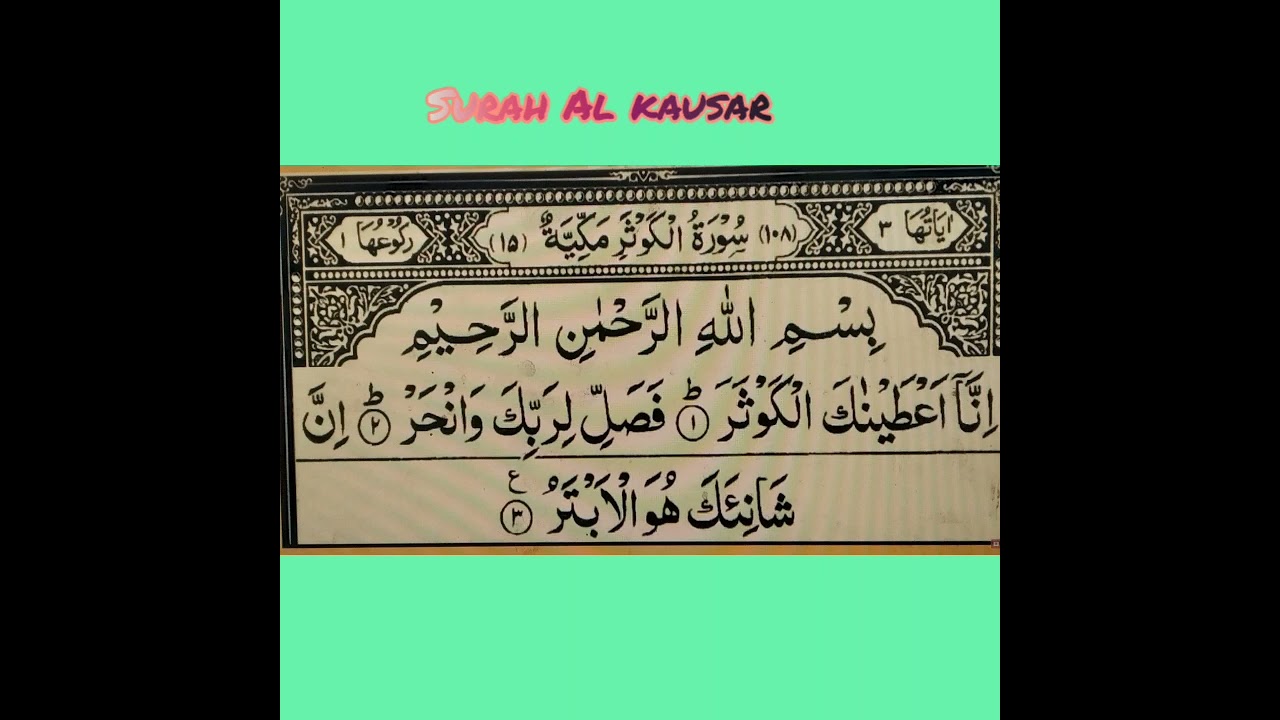 SURAH AL KAUSAR
اٰيَاتُهَا ٣ (١٠٨) سُوْرَةُ الْكَوْثَرِ مَكِّيَّةٌ (١٥) رُكُوْعُهَا ١
بِسْمِ اللّٰهِ الرَّحْمٰنِ الرَّحِيْمِ
اِنَّاۤ اَعْطَيْنٰكَ الْكَوْثَرَ ؕ﴿١﴾ فَصَلِّ لِرَبِّكَ وَانْحَرْ ؕ﴿٢﴾ اِنَّ
شَانِئَكَ هُوَ الْاَبْتَرُ ﴿٣﴾ ع